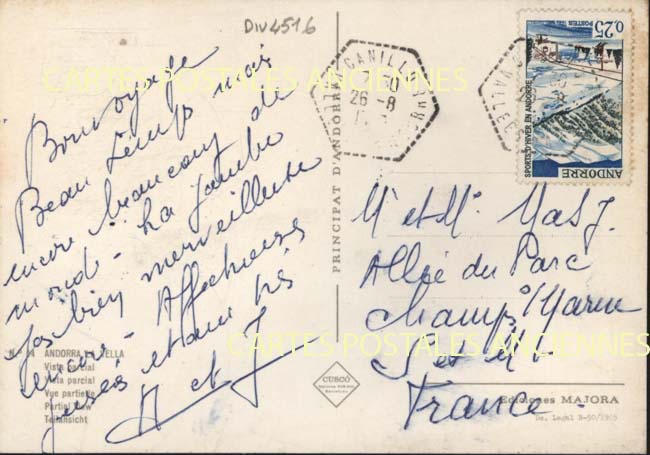 Div4516
Bon voyage
Beau temps mais
encore beaucoup de
monde. La jambe
pas bien merveilleuse
encore. Affectueuse
et
A et J
Nº 14 ANDORRA LA VELLA
Vista parcial
Vista parcial
Vue partielle
Partial View
Teilansicht
PRINCIPAT D'ANDORRA
CUSCÓ
CANILLO
26-8
0,25
POSTES
SPORTS D'HIVER EN ANDORRE
ANDORRE
Mr et Me Mas J.
Allée du Parc
Champs s/Marne
S et M.
France
Ediciones MAJORA
De. Legal B-50/1965
CARTES POSTALES ANCIENNES
CARTES POSTALES ANCIENNES